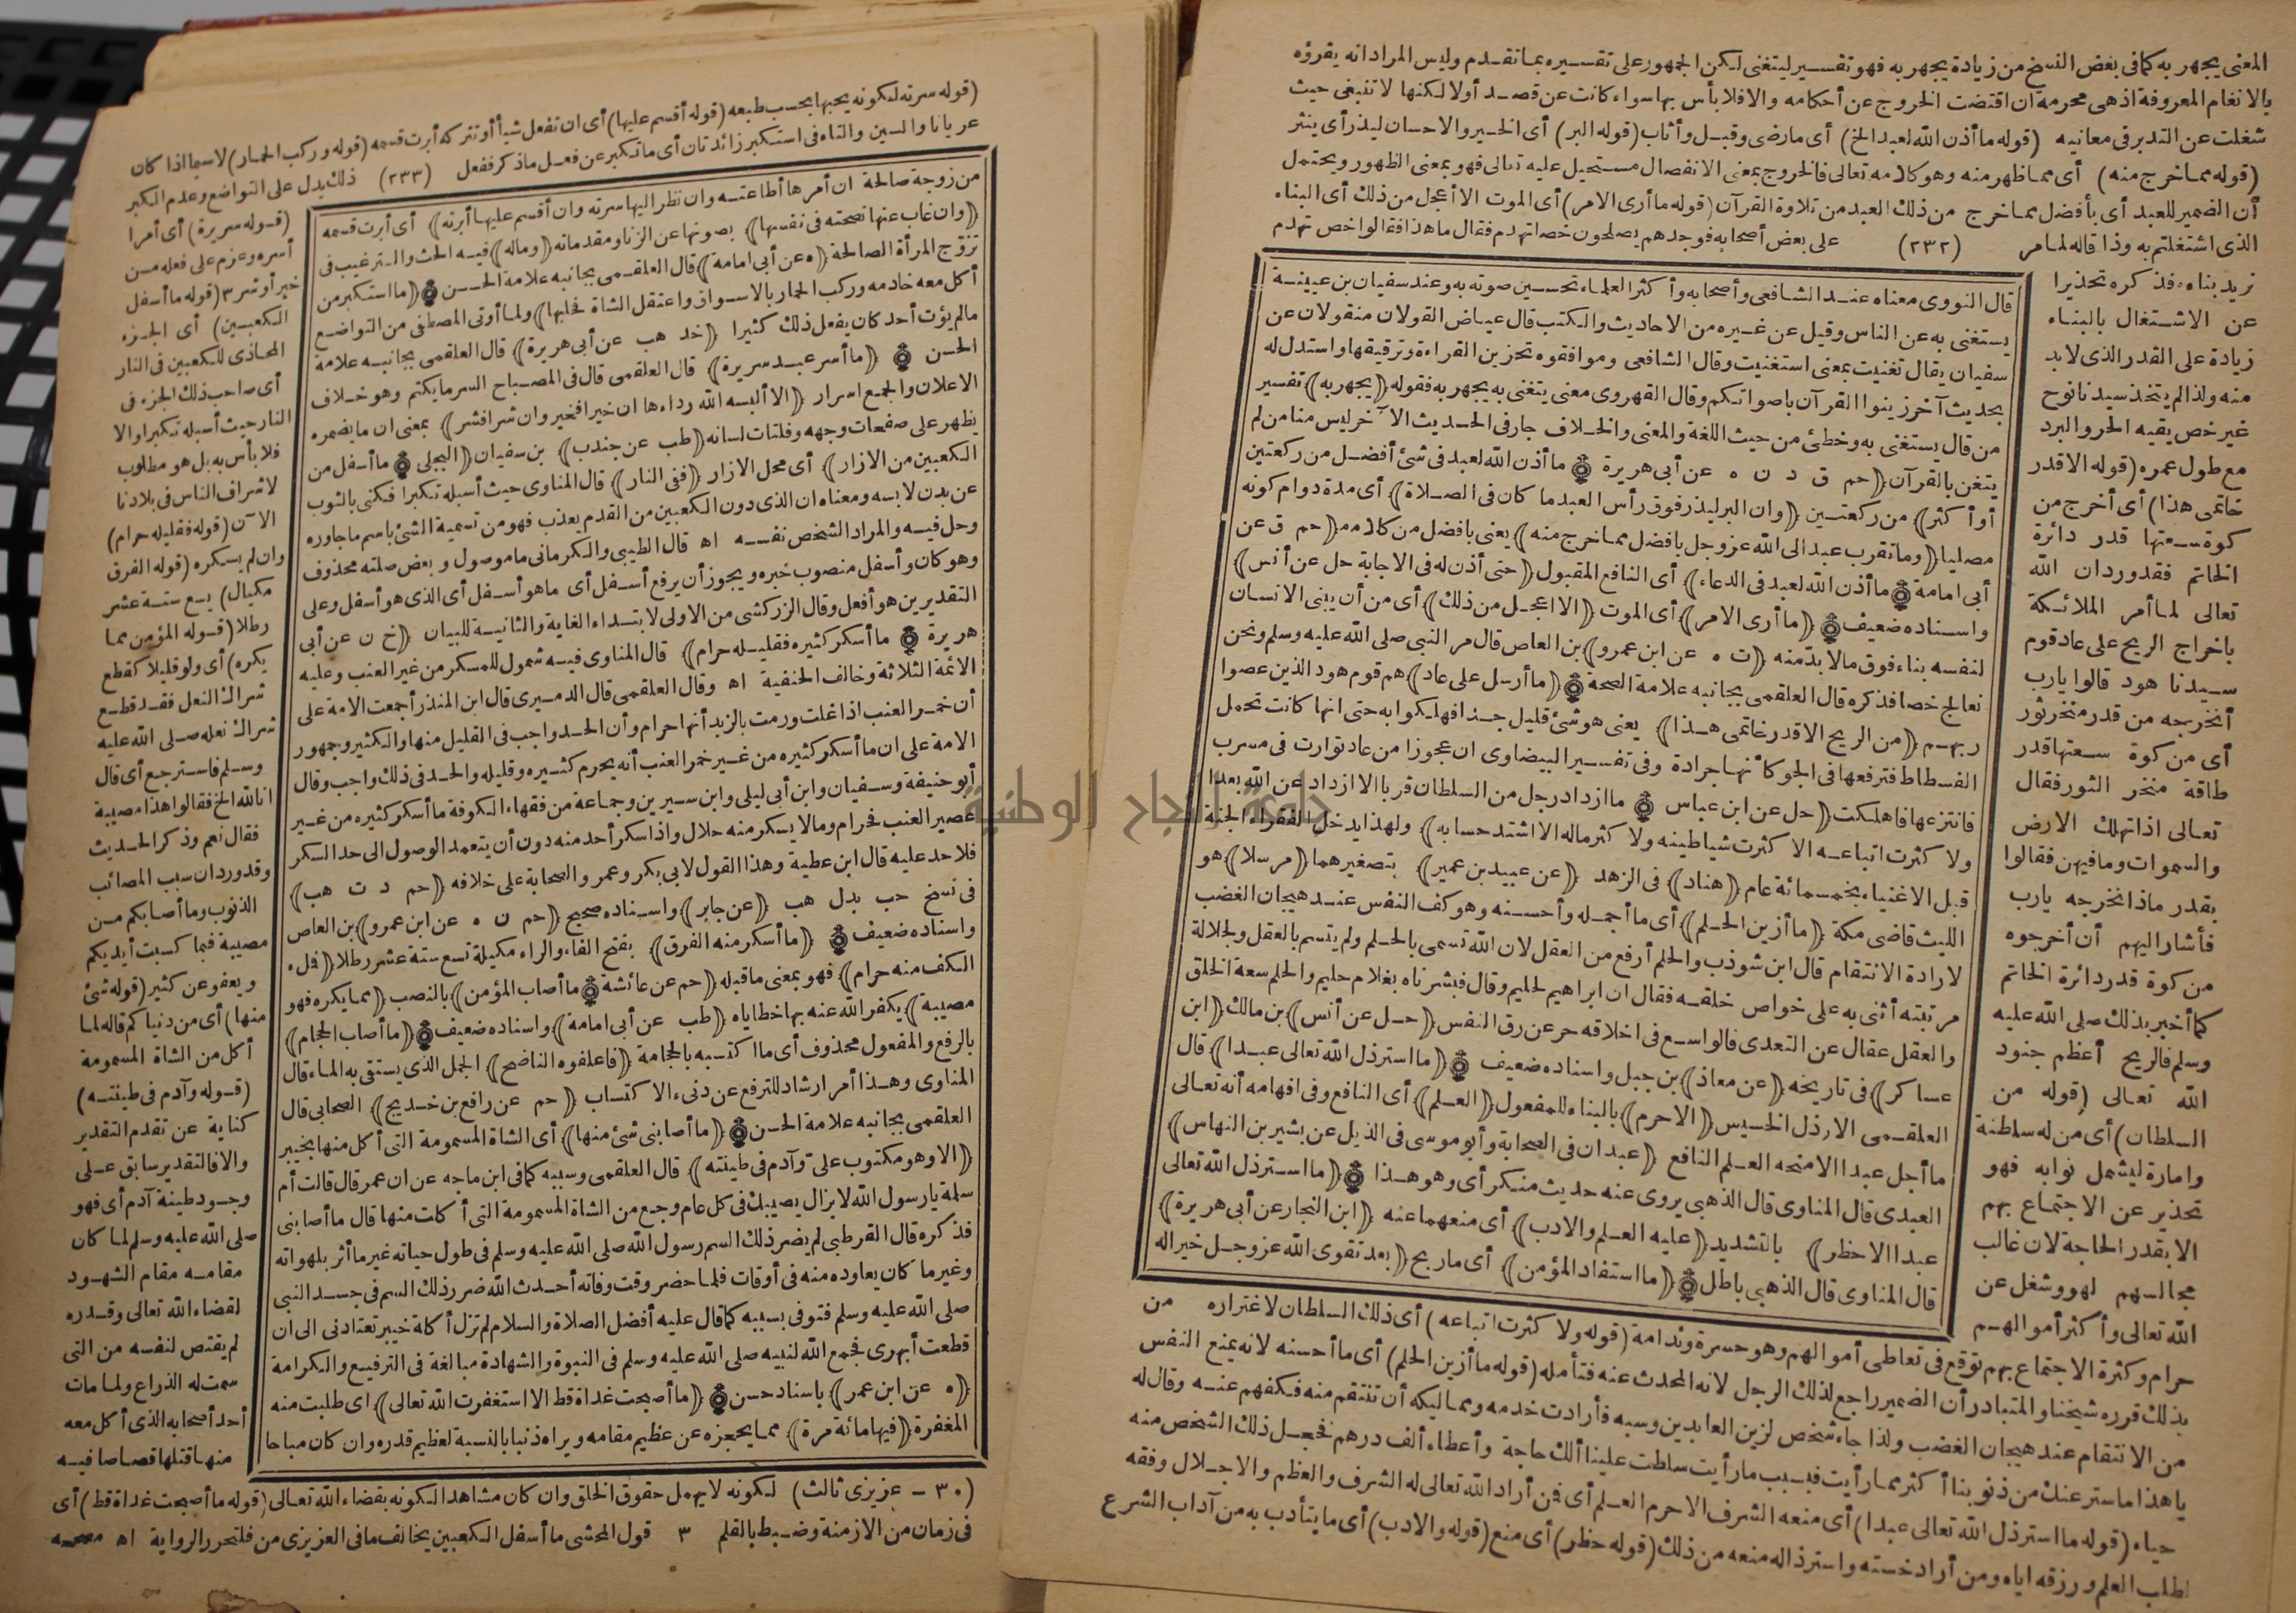 المغنى يجهر به كما فى بعض النسخ من زيادة يجهر به فهو تفسير ليتغنى لكن الجمهور على تفسيره بما تقدم وليس المراد انه يقرؤه
بالانغام المعروفة اذ هى محرمة ان اقتضت الخروج عن أحكامه والا فلا بأس بها سواء كانت عن قصد أولا لكنها لا تنبغى حيث
شغلت عن التدبر فى معانيه (قوله ما أذن الله لعبد الخ) أى ما رضى وقبل وأثاب (قوله البر) أى الخير والاحسان ليذر أى ينثر
(قوله مما خرج منه) أى مما ظهر منه وهو كلامه تعالى فالخروج بمعنى الانفصال مستحيل عليه تعالى فهو بمعنى الظهور ويحتمل
أن الضمير للعبد أى بأفضل مما خرج من ذلك العبد من تلاوة القرآن (قوله ما أرى الامر) أى الموت الا أعجل من ذلك أى البناء
الذى اشتغلتم به وذا قاله لما مر (٢٣٢) على بعض أصحابه فوجدهم يصلحون خصا تهدم فقال ما هذا فقالوا خص تهدم
نريد بناءه فذكره تحذيرا
عن الاشتغال بالبناء
زيادة على القدر الذى لابد
منه ولذا لم يتخذ سيدنا نوح
غير خص يقيه الحر والبرد
مع طول عمره (قوله الا قدر
خاتمى هذا) أى أخرج من
كوة سعتها قدر دائرة
الخاتم فقد ورد ان الله
تعالى لما أمر الملائكة
باخراج الريح على عاد قوم
سيدنا هود قالوا يارب
أنخرجه من قدر منخر ثور
أى من كوة سعتها قدر
طاقة منخر الثور فقال
تعالى اذا تهلك الارض
والسموات وما فيهن فقالوا
بقدر ماذا نخرجه يارب
فأشار اليهم أن أخرجوه
من كوة قدر دائرة الخاتم
كما أخبر بذلك صلى الله عليه
وسلم فالريح أعظم جنود
الله تعالى (قوله من
السلطان) أى من له سلطنة
وامارة ليشمل نوابه فهو
تحذير عن الاجتماع بهم
الا بقدر الحاجة لان غالب
مجالسهم لهو وشغل عن
الله تعالى وأكثر أموالهم
قال النووى معناه عند الشافعى وأصحابه وأكثر العلماء تحسين صوته به وعند سفيان بن عيينة
يستغنى به عن الناس وقيل عن غيره من الاحاديث والكتب قال عياض القولان منقولان عن
سفيان يقال تغنيت بمعنى استغنيت وقال الشافعى وموافقوه تحزين القراءة وترقيقها واستدل له
بحديث آخر زينوا القرآن باصواتكم وقال القهروى معنى يتغنى به يجهر به فقوله (يجهر به) تفسير
من قال يستغنى به وخطئ من حيث اللغة والمعنى والخلاف جار فى الحديث الآخر ليس منا من لم
يتغن بالقرآن (حم ق د ن ه عن أبى هريرة ما أذن الله لعبد فى شئ أفضل من ركعتين
أو أكثر) من ركعتين (وان البر ليذر فوق رأس العبد ما كان فى الصلاة) أى مدة دوام كونه
مصليا (وما تقرب عبد الى الله عز وجل بافضل مما خرج منه) يعنى بافضل من كلامه (حم ق عن
أبى امامة ما أذن الله لعبد فى الدعاء) أى النافع المقبول (حتى أذن له فى الاجابة حل عن أنس)
واسناده ضعيف (ما أرى الامر) أى الموت (الا اعجل من ذلك) أى من أن يبنى الانسان
لنفسه بناء فوق ما لا بد منه (ت ه عن ابن عمرو) بن العاص قال مر النبى صلى الله عليه وسلم ونحن
نعالج خصا فذكره قال العلقمى بجانبه علامة الصحة (ما أرسل على عاد) هم قوم هود الذين عصوا
ربهم (من الريح الا قدر خاتمى هذا) يعنى هو شئ قليل جدا فهلكوا به حتى انها كانت تحمل
الفسطاط فترفعها فى الجو كأنها جرادة وفى تفسير البيضاوى ان عجوزا من عاد توارت فى سرب
فانتزعها فاهلكت (حل عن ابن عباس ما ازداد رجل من السلطان قربا الا ازداد عن الله بعدا
ولا كثرت اتباعه الا كثرت شياطينه ولا كثر ماله الا اشتد حسابه) ولهذا يدخل الفقراء الجنة
قبل الاغنياء بخمسمائة عام (هناد) فى الزهد (عن عبيد بن عمير) بتصغيرهما (مرسلا) هو
الليث قاضى مكة (ما أزين الحلم) أى ما أجمله وأحسنه وهو كف النفس عند هيجان الغضب
لارادة الانتقام قال ابن شوذب والحلم أرفع من العقل لان الله تسمى بالحلم ولم يتسم بالعقل ولجلالة
مرتبته أثنى به على خواص خلقه فقال ان ابراهيم لحليم وقال فبشرناه بغلام حليم والحلم سعة الخلق
والعقل عقال عن التعدى فالواسع فى اخلاقه حر عن رق النفس (حل عن أنس) بن مالك (ابن
عساكر) فى تاريخه (عن معاذ) بن جبل واسناده ضعيف (ما استرذل الله تعالى عبدا) قال
العلقمى الارذل الخسيس (الا حرم) بالبناء للمفعول (العلم) أى النافع وفى افهامه أنه تعالى
ما أجل عبدا الا منحه العلم النافع (عبدان فى الصحابة وأبو موسى فى الذيل عن بشير بن النهاس)
العبدى قال المناوى قال الذهبى يروى عنه حديث منكر أى وهو هذا (ما استرذل الله تعالى
عبدا الا حظر) بالتشديد (عليه العلم والادب) أى منعهما عنه (ابن النجار عن أبى هريرة)
قال المناوى قال الذهبى باطل (ما استفاد المؤمن) أى ما ربح (بعد تقوى الله عز وجل خيرا له
من
حرام وكثرة الاجتماع بهم توقع فى تعاطى أموالهم وهو حسرة وندامة (قوله ولا كثرت اتباعه) أى ذلك السلطان لاغتراره
بذلك قرره شيخنا والمتبادر أن الضمير راجع لذلك الرجل لانه المحدث عنه فتأمله (قوله ما أزين الحلم) أى ما أحسنه لانه يمنع النفس
من الانتقام عند هيجان الغضب ولذا جاء شخص لزين العابدين وسبه فأرادت خدمه ومماليكه أن تنتقم منه فكفهم عنه وقال له
يا هذا ما ستر عنك من ذنوبنا أكثر مما رأيت فبسبب ما رأيت سلطت علينا ألك حاجة وأعطاه ألف درهم فخجل ذلك الشخص منه
حياء (قوله ما استرذل الله تعالى عبدا) أى منعه الشرف الا حرم العلم أى فمن أراد الله تعالى له الشرف والعظم والاجلال وفقه
لطلب العلم ورزقه اياه ومن أراد خسته واسترذاله منعه من ذلك (قوله حظر) أى منع (قوله والادب) أى ما يتأدب به من آداب الشرع
(قوله سرته لكونه يحبها بحسب طبعه (قوله أقسم عليها) أى ان تفعل شيأ أو تتركه أبرت قسمه (قوله وركب الحمار) لا سيما اذا كان
عريانا والسين والتاء فى استكبر زائدتان أى ما تكبر عن فعل ما ذكر ففعل (٢٣٣) ذلك يدل على التواضع وعدم الكبر
من زوجة صالحة ان أمرها أطاعته وان نظر اليها سرته وان أقسم عليها أبرته) أى أبرت قسمه
(وان غاب عنها نصحته فى نفسها) بصونها عن الزنا ومقدماته (وماله) فيه الحث والترغيب فى
تزوّج المرأة الصالحة (ه عن أبى امامة) قال العلقمى بجانبه علامة الحسن (ما استكبر من
أكل معه خادمه وركب الحمار بالاسواق واعتقل الشاة فحلبها) ولما أوتى المصطفى من التواضع
مالم يؤت أحد كان يفعل ذلك كثيرا (خد هب عن أبى هريرة) قال العلقمى بجانبه علامة
الحسن (ما أسر عبد سريرة) قال العلقمى قال فى المصباح السر ما يكتم وهو خلاف
الاعلان والجمع اسرار (الا ألبسه الله رداءها ان خيرا فخير وان شرا فشر) بمعنى ان ما يضمره
يظهر على صفحات وجهه وفلتات لسانه (طب عن جندب) بن سفيان (البجلى ما أسفل من
الكعبين من الازار) أى محل الازار (ففى النار) قال المناوى حيث أسبله تكبرا فكنى بالثوب
عن بدن لابسه ومعناه ان الذى دون الكعبين من القدم يعذب فهو من تسمية الشئ باسم ما جاوره
وحل فيه والمراد الشخص نفسه اه قال الطيبى والكرمانى ما موصول وبعض صلته محذوف
وهو كان وأسفل منصوب خبره ويجوز أن يرفع أسفل أى ما هو أسفل أى الذى هو أسفل وعلى
التقديرين هو أفعل وقال الزركشى من الاولى لابتداء الغاية والثانية للبيان (خ ن عن أبى
هريرة ما أسكر كثيره فقليله حرام) قال المناوى فيه شمول للمسكر من غير العنب وعليه
الائمة الثلاثة وخالف الحنفية اه وقال العلقمى قال الدميرى قال ابن المنذر أجمعت الامة على
أن خمر العنب اذا غلت ورمت بالزبد أنها حرام وأن الحد واجب فى القليل منها والكثير وجمهور
الامة على ان ما أسكر كثيره من غير خمر العنب أنه يحرم كثيره وقليله والحد فى ذلك واجب وقال
أبو حنيفة وسفيان وابن أبى ليلى وابن سيرين وجماعة من فقهاء الكوفة ما أسكر كثيره من غير
عصير العنب فحرام وما لا يسكر منه حلال واذا سكر أحد منه دون أن يتعمد الوصول الى حد السكر
فلا حد عليه قال ابن عطية وهذا القول لابى بكر وعمر والصحابة على خلافه (حم د ت هب)
فى نسخ حب بدل هب (عن جابر) واسناده صحيح (حم ن ه عن ابن عمرو) بن العاص
واسناده ضعيف (ما أسكر منه الفرق) بفتح الفاء والراء مكيلة تسع ستة عشر رطلا (فلء
الكف منه حرام) فهو بمعنى ما قبله (حم عن عائشة ما أصاب المؤمن) بالنصب (مما يكره فهو
مصيبة) يكفر الله عنه بها خطاياه (طب عن أبى امامة) واسناده ضعيف (ما أصاب الحجام)
بالرفع والمفعول محذوف أى ما اكتسبه بالحجامة (فاعلفوه الناضح) الجمل الذى يستقى به الماء قال
المناوى وهذا أمر ارشاد للترفع عن دنىء الاكتساب (حم عن رافع بن خديج) الصحابى قال
العلقمى بجانبه علامة الحسن (ما أصابنى شئ منها) أى الشاة المسمومة التى أكل منها بخيبر
(الا وهو مكتوب علىّ وآدم فى طينته) قال العلقمى وسببه كما فى ابن ماجه عن ابن عمر قال قالت أم
سلمة يا رسول الله لا يزال يصيبك فى كل عام وجع من الشاة المسمومة التى أكلت منها قال ما أصابنى
فذكره قال القرطبى لم يضر ذلك السم رسول الله صلى الله عليه وسلم فى طول حياته غير ما أثر بلهواته
وغير ما كان يعاوده منه فى أوقات فلما حضر وقت وفاته أحدث الله ضرر ذلك السم فى جسد النبى
صلى الله عليه وسلم فتوفى بسببه كما قال عليه أفضل الصلاة والسلام لم تزل أكلة خيبر تعتادنى الى ان
قطعت أبهرى فجمع الله لنبيه صلى الله عليه وسلم فى النبوة والشهادة مبالغة فى الترفيع والكرامة
(ه عن ابن عمر) باسناد حسن (ما أصبحت غداة قط الا استغفرت الله تعالى) اى طلبت منه
المغفرة (فيها مائة مرة) مما يحجزه عن عظيم مقامه ويراه ذنبا بالنسبة لعظيم قدره وان كان مباحا
(قوله سريرة) أى أمرا
أسره وعزم على فعله من
خير أو شر ٣ (قوله ما أسفل
الكعبين) أى الجزء
المحاذى للكعبين فى النار
أى صاحب ذلك الجزء فى
النار حيث أسبله تكبرا والا
فلا بأس به بل هو مطلوب
لاشراف الناس فى بلادنا
الآن (قوله فقليله حرام)
وان لم يسكره (قوله الفرق
مكيال) يسع ستة عشر
رطلا (قوله المؤمن مما
يكره) أى ولو قليلا كقطع
شراك النعل فقد قطع
شراك نعله صلى الله عليه
وسلم فاسترجع أى قال
انا لله الخ فقالوا هذا مصيبة
فقال نعم وذكر الحديث
وقد ورد ان سبب المصائب
الذنوب وما أصابكم من
مصيبة فبما كسبت أيديكم
ويعفو عن كثير (قوله شئ
منها) أى من دنياكم قاله لما
أكل من الشاة المسمومة
(قوله وآدم فى طينته)
كناية عن تقدم التقدير
والا فالتقدير سابق على
وجود طينة آدم أى فهو
صلى الله عليه وسلم لما كان
مقامه مقام الشهود
لقضاء الله تعالى وقدره
لم يقتص لنفسه من التى
سمت له الذراع ولما مات
أحد أصحابه الذى أكل معه
منها قتلها قصاصا فيه
(٣٠ - عزيزى ثالث) لكونه لا يهمل حقوق الخلق وان كان مشاهدا لكونه بقضاء الله تعالى (قوله ما أصبحت غداة قط) أى
فى زمان من الازمنة وضبط بالقلم ٣ قول المحشى ما أسفل الكعبين يخالف ما فى العزيزى من فلتحرر الرواية اه مصححه
جامعة النجاح الوطنية